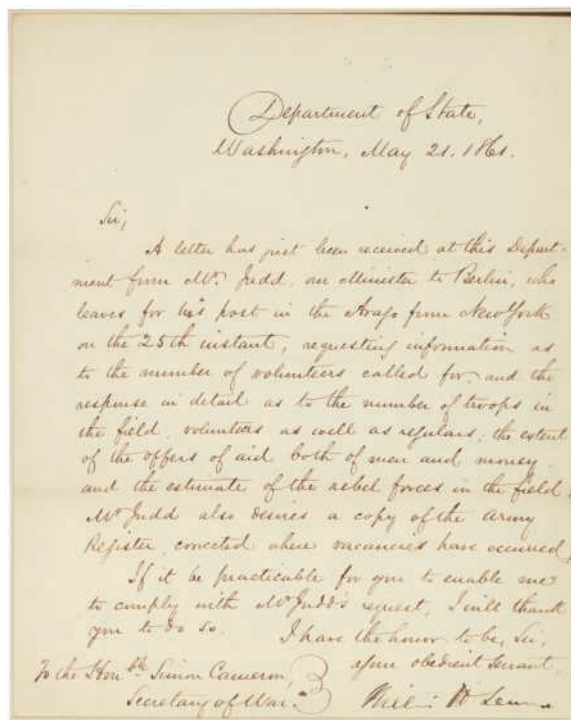 Department of State,
Washington, May 21. 1861.
Sir,
A letter has just been received at this Depart-
ment from Mr. Judd, our Minister to Berlin, who
leaves for his post in the Arago from New York
on the 25th instant, requesting information as
to the number of volunteers called for, and the
response in detail as to the number of troops in
the field, volunteers as well as regulars; the extent
of the offers of aid both of men and money.
and the estimate of the rebel forces in the field.
Mr Judd also desires a copy of the Army
Register, corrected where vacancies have occurred.
If it be practicable for you to enable me
to comply with Mr Judd's request, I will thank
you to do so.
I have the honor to be, Sir,
your obedient servant,
To the Honble Simon Cameron,
Secretary of War.